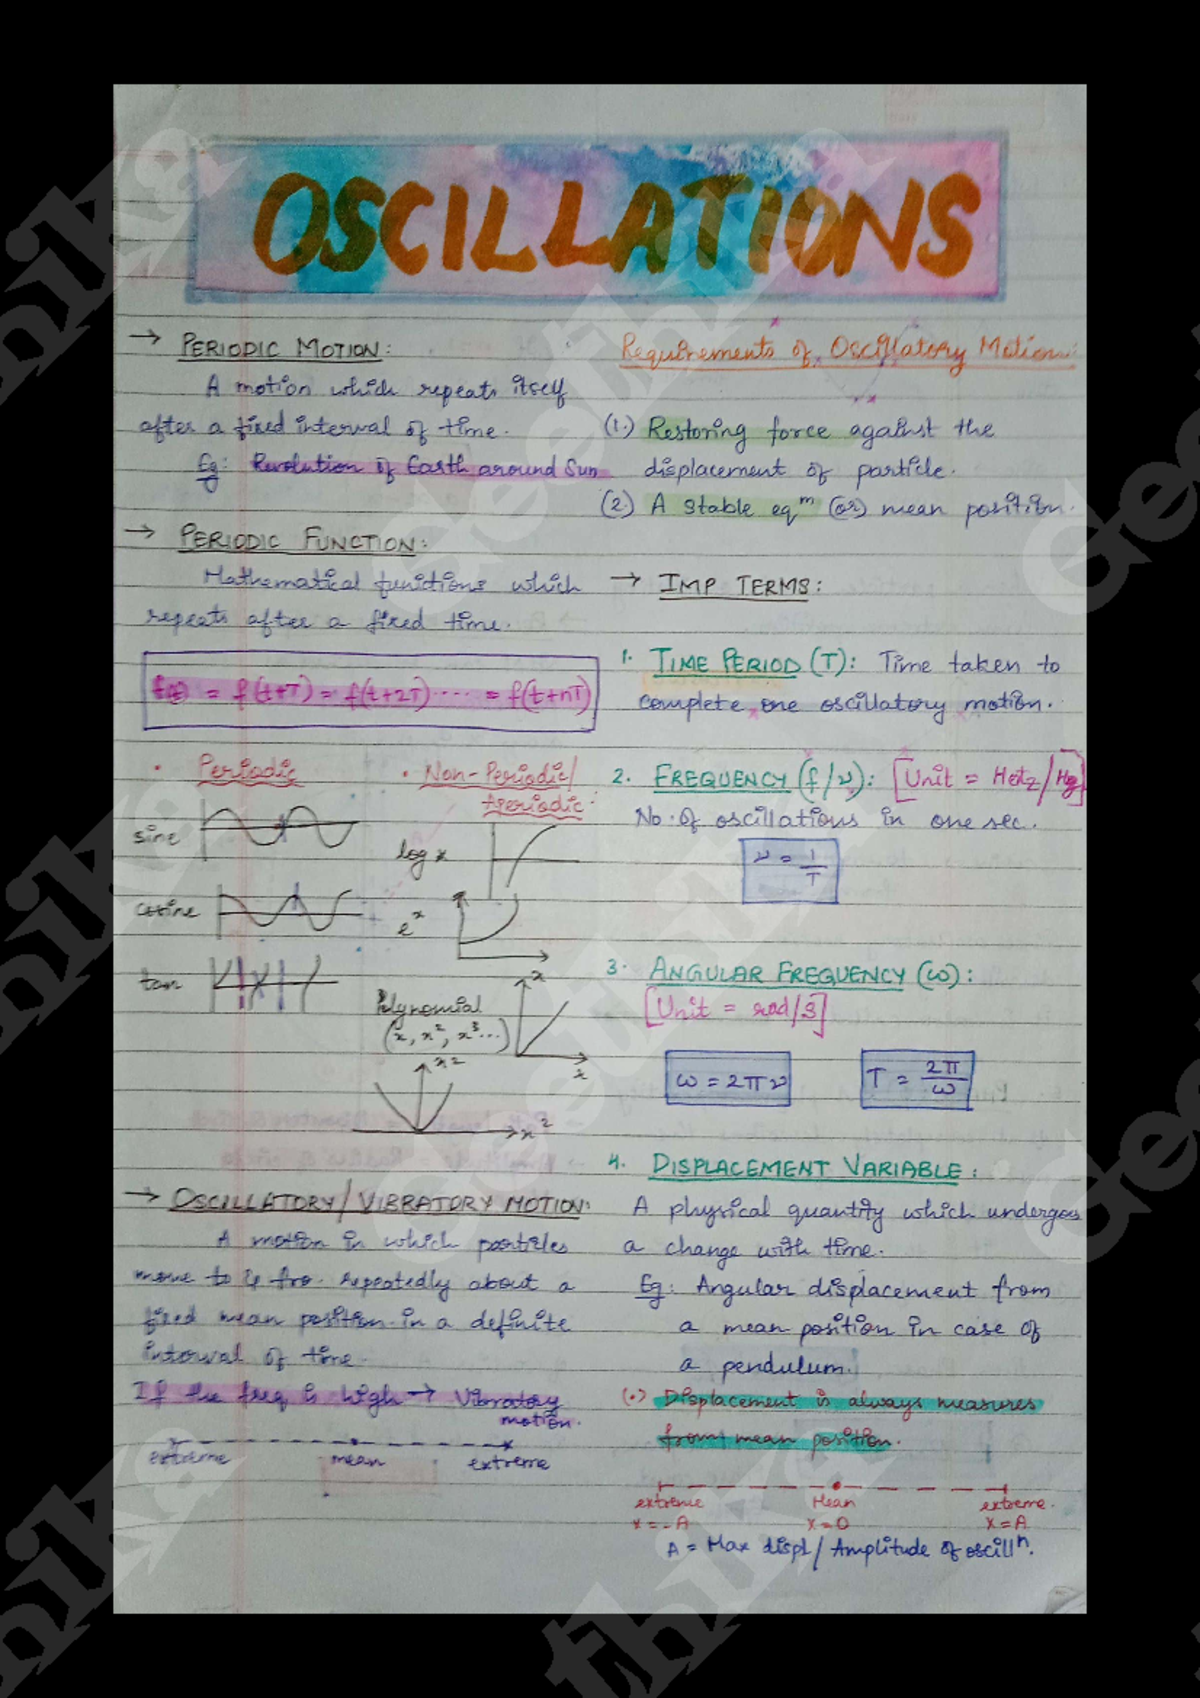 OSCILLATIONS
→ PERIODIC MOTION:
A motion which repeats itself
after a fixed interval of time.
Eg: Revolution of Earth around Sun
→ PERIODIC FUNCTION:
Mathematical functions which
repeats after a fixed time.
f(t) = f(t+T) = f(t+2T) ..... = f(t+nT)
• Periodic
sine
cosine
tan
• Non-Periodic/
Aperiodic.
log x
e^x
Polynomial
(x, x², x³...)
x
x
x²
x²
→ OSCILLATORY/VIBRATORY MOTION:
A motion in which particles
move to & fro repeatedly about a
fixed mean position in a definite
interval of time.
If the freq is high → Vibratory
motion.
extreme mean extreme
Requirements of Oscillatory Motion:
(1.) Restoring force against the
displacement of particle.
(2.) A stable eqᵐ (or) mean position.
→ IMP TERMS:
1. TIME PERIOD (T): Time taken to
complete one oscillatory motion.
2. FREQUENCY (f/ν): [Unit = Hertz/Hz]
No. of oscillations in one sec.
ν = 1/T
3. ANGULAR FREQUENCY (ω):
[Unit = rad/s]
ω = 2πν
T = 2π/ω
4. DISPLACEMENT VARIABLE:
A physical quantity which undergoes
a change with time.
Eg: Angular displacement from
a mean position in case of
a pendulum.
(•) Displacement is always measures
from mean position.
extreme Mean extreme.
x = -A x = 0 x = A
A = Max displ/Amplitude of oscillⁿ.
Geethika